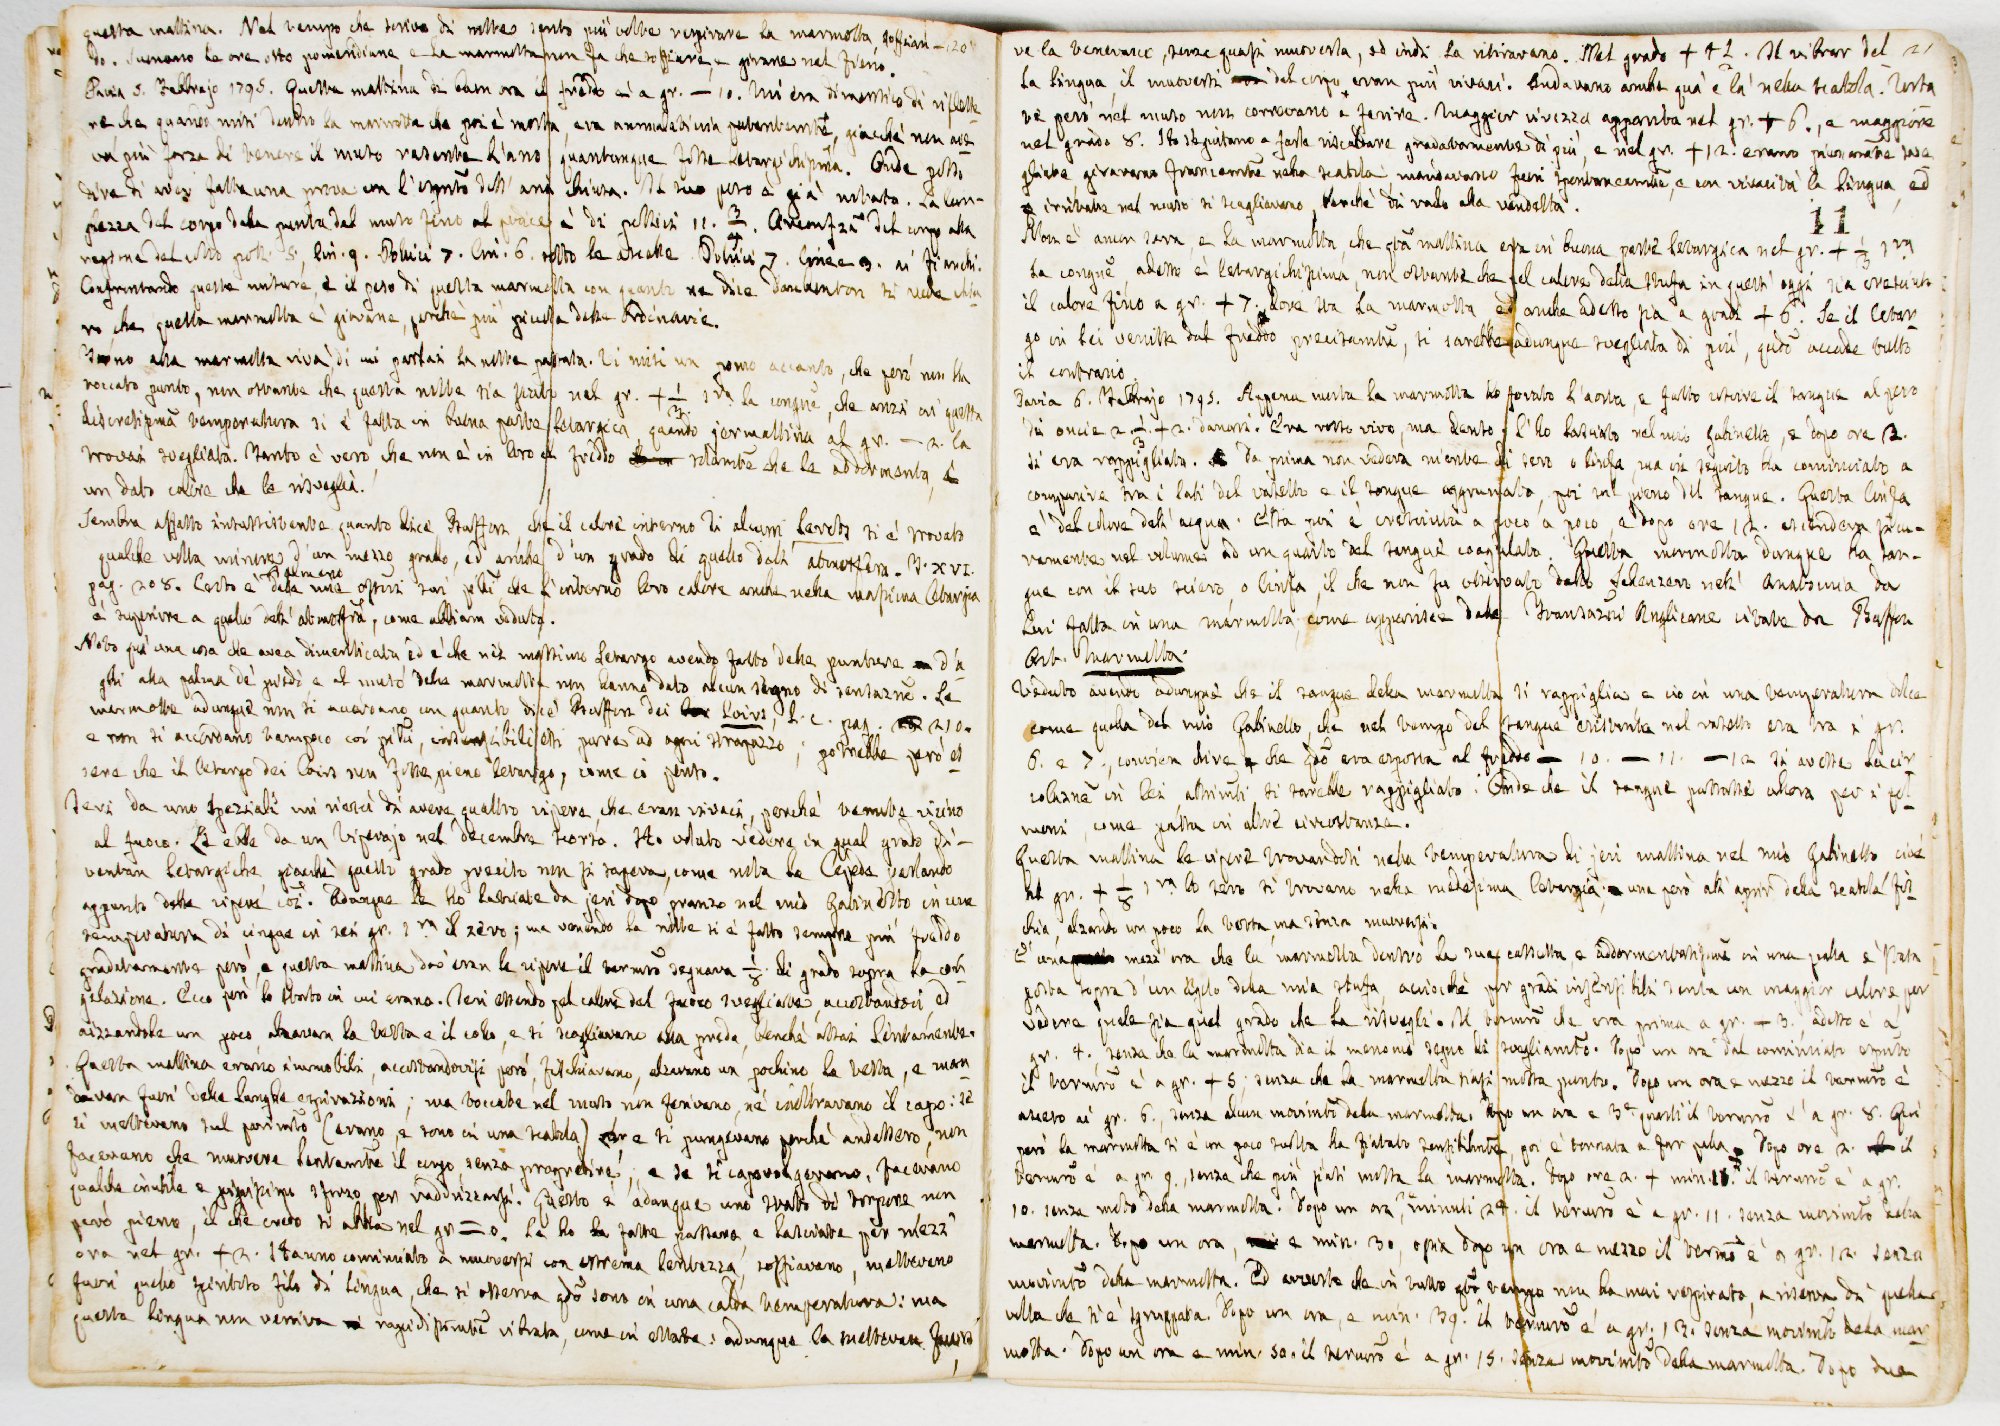 questa mattina. Nel tempo che scrivo di notte sento più volte respirare la marmotta, soffian-
do. Suonano le ore otto pomeridiane e la marmotta non fa che soffiare, e girare nel fieno.
Pavia 5. Febbrajo 1795. Questa mattina di buon ora il freddo ai a gr. — 10. Mi era dimentico di riflette-
re che quando misi dentro la marmotta che poi è morta, era ammalatissima, giacchè non ave-
va più forza di tenere il muso rasente l'ano quantunque fosse letargichissima. Onde posso
dire di aver fatta una prova con l'esperimto dell'aria chiusa. Il suo peso è già notato. La lun-
ghezza del corpo dalla punta del muso fino al podice è di pollici 11. 3/4. Circonfza del corpo alla
regione del collo poll. 5, lin. 9. Pollici 7. lin. 6. sotto le ascelle. Pollici 7. linee 9. ai fianchi.
Confrontando queste misure, e il peso di questa marmotta con quanto ne dice Daubenton si vede chia-
ro, che questa marmotta è giovane, perchè più piccola delle ordinarie.
Torno alla marmotta viva di cui parlai la notte passata. Vi misi un pomo accanto, che però non ha
toccato punto, non ostante che questa notte sia stata nel gr. + 1/3 sra la congne, che anzi in questa
discretissima temperatura si è fatta in buona parte letargica quando jermattina al gr. — 2. la
trovai svegliata. Tanto è vero, che non è in loro il freddo solamte che le addormenta, e
un dato calore che le risveglia.
Sembra affatto insussistente quanto dice Buffon che il calore interno di alcuni Lerots si è trovato
qualche volta minore d'un mezzo grado, ed anche d'un grado di quello dell'atmosfera. T. XVI.
pag. 208. Certo è dalle mie osservi almeno che l'interno loro calore anche nella massima letargia
è superiore a quello dell'atmosfra, come abbiam veduto.
Noto qui una cosa che avea dimenticata ed è che nel massimo letargo avendo fatto delle punture d'a-
ghi alla palma de' piedi e al muso della marmotta non hanno dato alcun segno di sensazne. Le
marmotte adunque non si accordano con quanto dice Buffon dei Loirs, l. c. pag. 210.
e non si accordano tampoco coi ptli, insensibilissimi pure ad ogni strapazzo; potrebbe però es-
sere che il letargo dei Loirs non fosse pieno letargo, come io penso.
Ieri da uno speziale mi riescì di avere quattro vipere, che eran vivaci, perchè tenute vicino
al fuoco. Le ebbe da un viperajo nel decembre scorso. Ho voluto vedere in qual grado di-
ventan letargiche, giacchè questo grado preciso non si sapeva, come nota la Cepede parlando
appunto delle vipere coi. Adunque le ho lasciate da jeri dopo pranzo nel mio Gabinetto in una
temperatura di cinque in sei gr. sra il zero; ma venendo la notte si è fatto sempre più freddo
gradatamente però, e questa mattina dov'eran le vipere il termro segnava 1/8 di grado sopra la con-
gelazione. Ecco però lo stato in cui erano. Ieri essendo pel calore del fuoco svegliate, accostandosi ed
aizzandole un poco, alzavan la testa e il collo, e si scagliavano alla preda, benchè assai lentamente.
Questa mattina erano immobili, accostandovisi però, fischiavano, alzavano un pochino la testa, e man-
davan fuori delle lunghe espirazioni; ma toccate nel muso non ferivano, nè inoltravano il capo: se
si mettevano sul pavimto (erano, e sono in una scatola) e si pungevano perchè andassero, non
facevano che muovere lentamte il corpo senza progredire; e se si capovolgevano, facevano
qualche inutile e pigrissimo sforzo per raddrizzarsi. Questo è adunque uno stato di torpore non
però pieno, il che credo si abbia nel gr = 0. Le ho fatte passare, e lasciate per mezz'
ora nel gr. + 2. Hanno cominciato a muoversi con estrema lentezza, soffiavano, mettevano
fuori quello spuntato filo di lingua, che si osserva qdo sono in una calda temperatura: ma
questa lingua non veniva rapidissimamte vibrata, come in estate: adunque la mettevan fuori
21
ve la tenevano, senza quasi muoverla, ed indi la ritiravano. Nel grado + 4 1/2. Il vibrar del-
la lingua, il muoversi del corpo eran più vivaci. Andavano anche quà e là nella scatola. Irrita-
te però nel muso non correvano a ferire. Maggior vivezza appariva nel gr. + 6., e maggiore
nel grado 8. Ho seguitato a farle riscaldare gradatamente di più, e nel gr. + 12. erano pienamte sve-
gliate giravano francamte nella scatola mandavano fuori spontaneamte, e con vivacità la lingua, ed
irritate nel muso si scagliavano, benchè di rado alla vendetta.
11
Non è ancor sera, e la marmotta, che qta mattina era in buona parte letargica nel gr. + 1/3 sra
la congne, adesso è letargichissima, non ostante che pel calore della stufa in quest'oggi sia cresciuto
il calore fino a gr. + 7. dove sta la marmotta ed anche adesso sia a gradi + 6. Se il letar-
go in lei venisse dal freddo precisamte, si sarebbe adunque svegliata di più, qdo accade tutto
il contrario.
Pavia 6. Febbrajo 1795. Appena morta la marmotta ho forato l'aorta, e fatto uscire il sangue al peso
di oncie 2. 1/3. + 2. danari. Era rosso vivo, ma denso. L'ho lasciato nel mio Gabinetto, e dopo ore 2.
si era rappigliato. Da prima non vedeva niente di sero o linfa, ma in seguito ha cominciato a
comparire tra i lati del vasetto e il sangue aggrumato, poi sul pieno del sangue. Questa linfa
è del colore dell'acqua. Essa poi è cresciuta a poco a poco, e dopo ore 12. ascendeva sicu-
ramente nel volume ad un quarto del sangue coagulato. Questa marmotta dunque ha san-
gue con il suo siero, o linfa, il che non fu osservato dallo Scheuzero nell'Anatomia da
lui fatta in una marmotta, come apparisce dalle Transazni Anglicane citate da Buffon
Art. Marmotta.
Veduto avendo adunque che il sangue della marmotta si rappiglia e ciò in una temperatura dolce
come quella del mio Gabinetto, che nel tempo del sangue esistente nel vasetto era tra i gr.
6. e 7., convien dire che qdo era esposta al freddo — 10. — 11. — 12 si avesse la cir-
colazne in lei, altrimti si sarebbe rappigliato: Onde che il sangue passasse allora per i pol-
moni, come passa in altre circostanze.
Questa mattina le vipere trovandosi nella temperatura di jeri mattina nel mio Gabinetto cioè
al gr. + 1/8 sra lo zero si trovano nella medesima letargia, una però all'aprir della scatola fis-
chia, alzando un poco la testa, ma senza muoversi.
E' una mezz'ora che la marmotta dentro la sua cassetta e addormentatissima in una palla è stata
posta sopra d'un lato della mia stufa, acciochè per gradi insensibili senta un maggior calore per
vedere quale sia quel grado che la risvegli. Il termro che era prima a gr. — 3., adesso è a
gr. 4. senza che la marmotta dia il menomo segno di svegliamto. Dopo un ora dal cominciato espmto
il termro è a gr. + 5. senza che la marmotta siasi mossa punto. Dopo un ora e mezzo il termro è
asceso ai gr. 6., senza alcun movimto della marmotta. Dopo un ora e 3 quarti il termro è a gr. 8. Qui
però la marmotta si è un poco svolta ha fiatato sensibilmte, poi è tornata a far palla. Dopo ore 2. il
termro è a gr. 9., senza che più siasi mossa la marmotta. Dopo ore 2. + min. 15. il termro è a gr.
10. senza moto della marmotta. Dopo un ora, minuti 24. il termro è a gr. 11. senza movimto della
marmotta. Dopo un ora, e min. 30, ossia dopo un ora e mezzo il termro è a gr. 12. senza
movimto della marmotta. Ed avverto che in tutto qto tempo non ha mai respirato, a riserva di quella
volta che si è sgruppata. Dopo un ora, e min. 39. il termro è a gr. 13. senza movimto della mar-
motta. Dopo un ora e min. 50. il termro è a gr. 15. senza movimto della marmotta. Dopo due